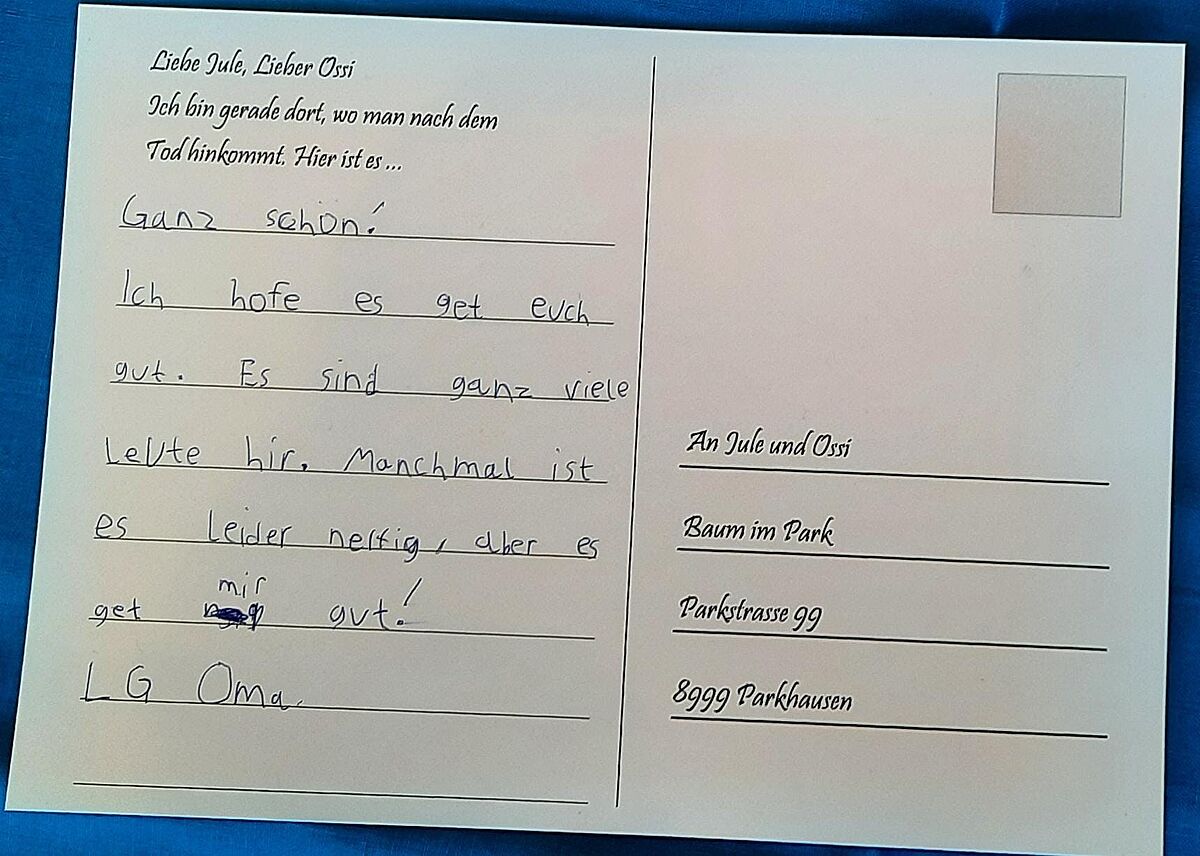 Liebe Jule, Lieber Ossi
Ich bin gerade dort, wo man nach dem
Tod hinkommt. Hier ist es ...
Ganz schön!
Ich hofe es get euch
gut. Es sind ganz viele
Leute hir. Manchmal ist
es leider neftig, aber es
get mir gut!
LG Oma.
An Jule und Ossi
Baum im Park
Parkstrasse 99
8999 Parkhausen